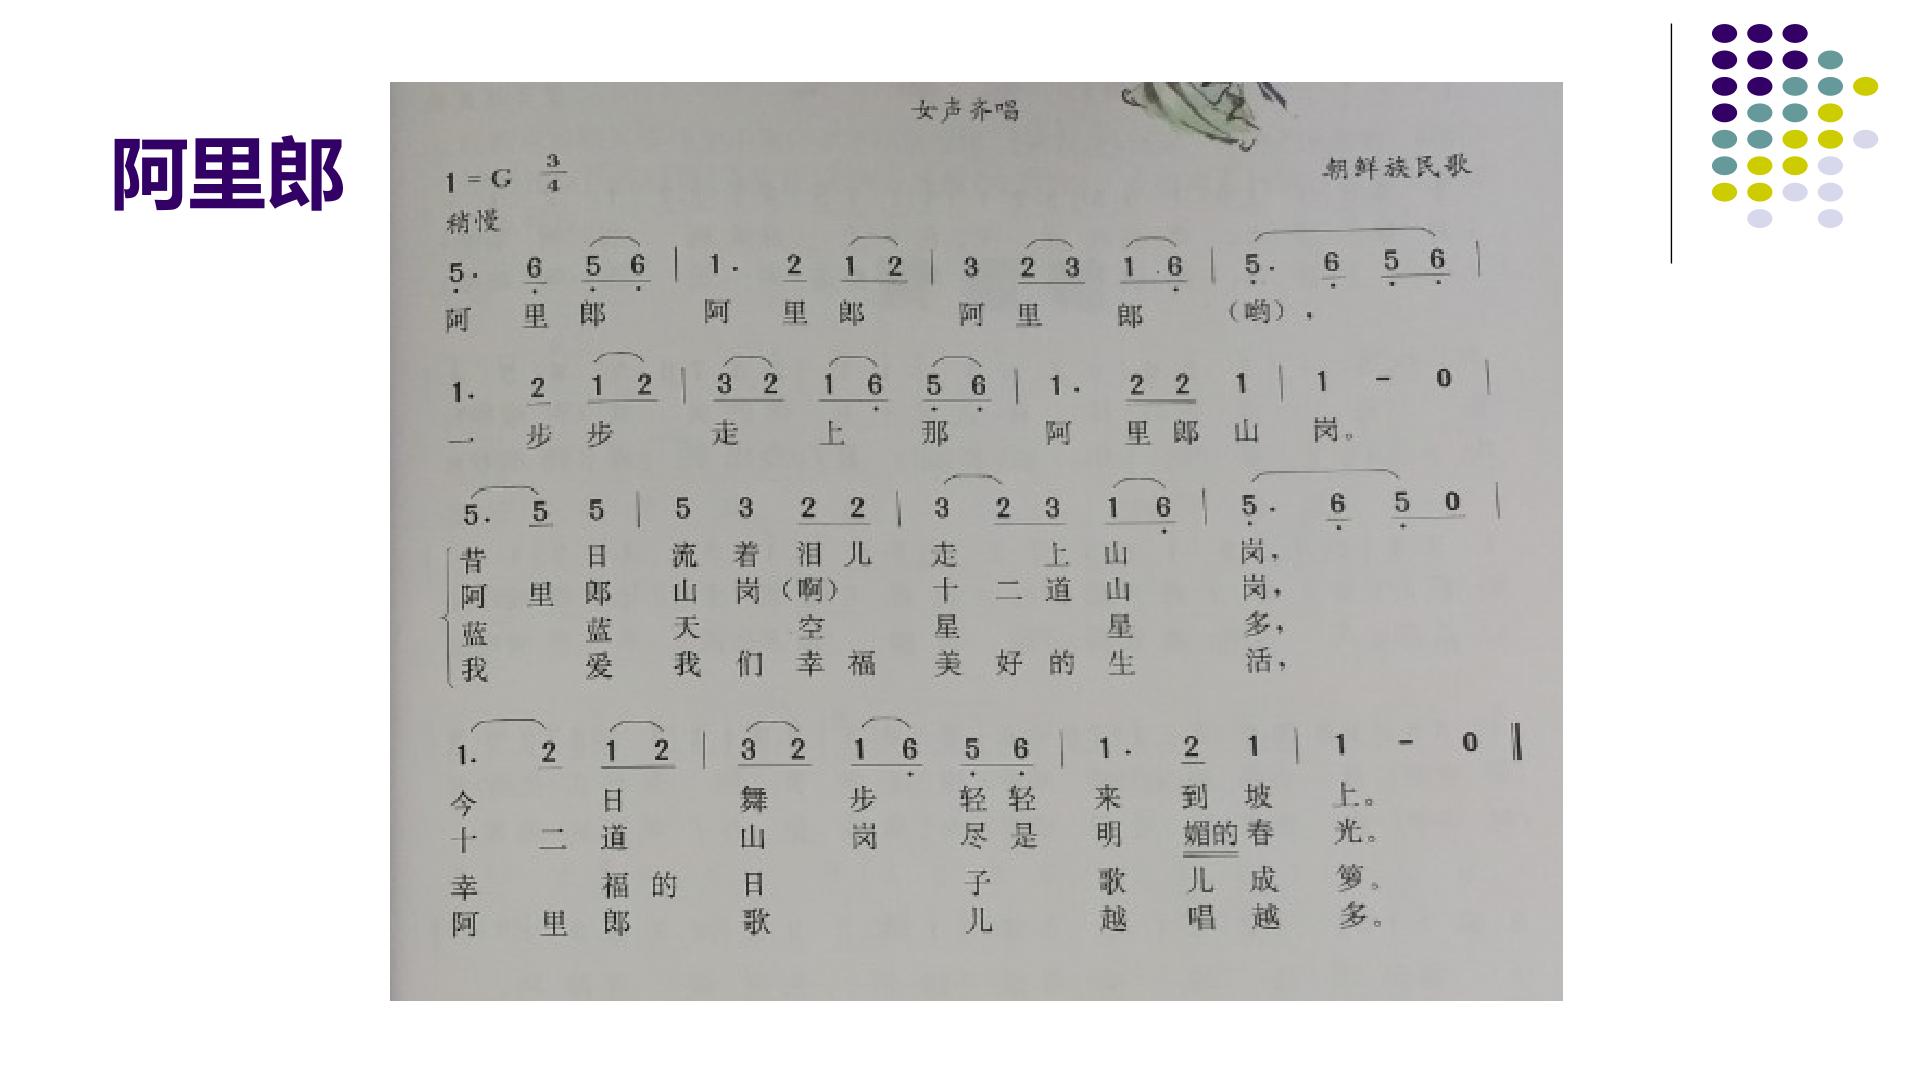 阿里郎
女声齐唱
1=G 3/4
朝鲜族民歌
稍慢
5̣. 6̣ 5̣ 6̣ | 1. 2 1 2 | 3 2 3 1 6̣ | 5̣. 6̣ 5̣ 6̣ |
阿 里 郎 阿 里 郎 阿 里 郎 (哟),
1. 2 1 2 | 3 2 1 6̣ 5̣ 6̣ | 1. 2 2 1 | 1 - 0 |
一 步 步 走 上 那 阿 里 郎 山 岗。
5. 5 5 | 5 3 2 2 | 3 2 3 1 6̣ | 5̣. 6̣ 5̣ 0 |
昔 日 流 着 泪 儿 走 上 山 岗,
阿 里 郎 山 岗 (啊) 十 二 道 山 岗,
蓝 蓝 天 空 星 星 多,
我 爱 我 们 幸 福 美 好 的 生 活,
1. 2 1 2 | 3 2 1 6̣ 5̣ 6̣ | 1. 2 1 | 1 - 0 ‖
今 日 舞 步 轻 轻 来 到 坡 上。
十 二 道 山 岗 尽 是 明 媚的 春 光。
幸 福 的 日 子 歌 儿 成 箩。
阿 里 郎 歌 儿 越 唱 越 多。